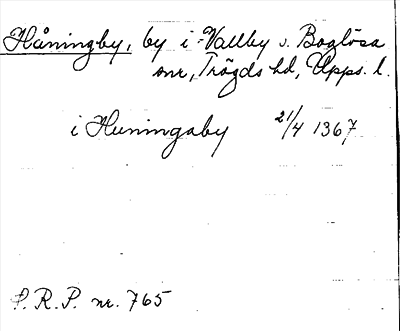 Håningby, by i Vallby o. Boglösa
snr, Trögds hd, Upps. l.
i Huningaby 21/4 1367
P.R.P. nr. 765